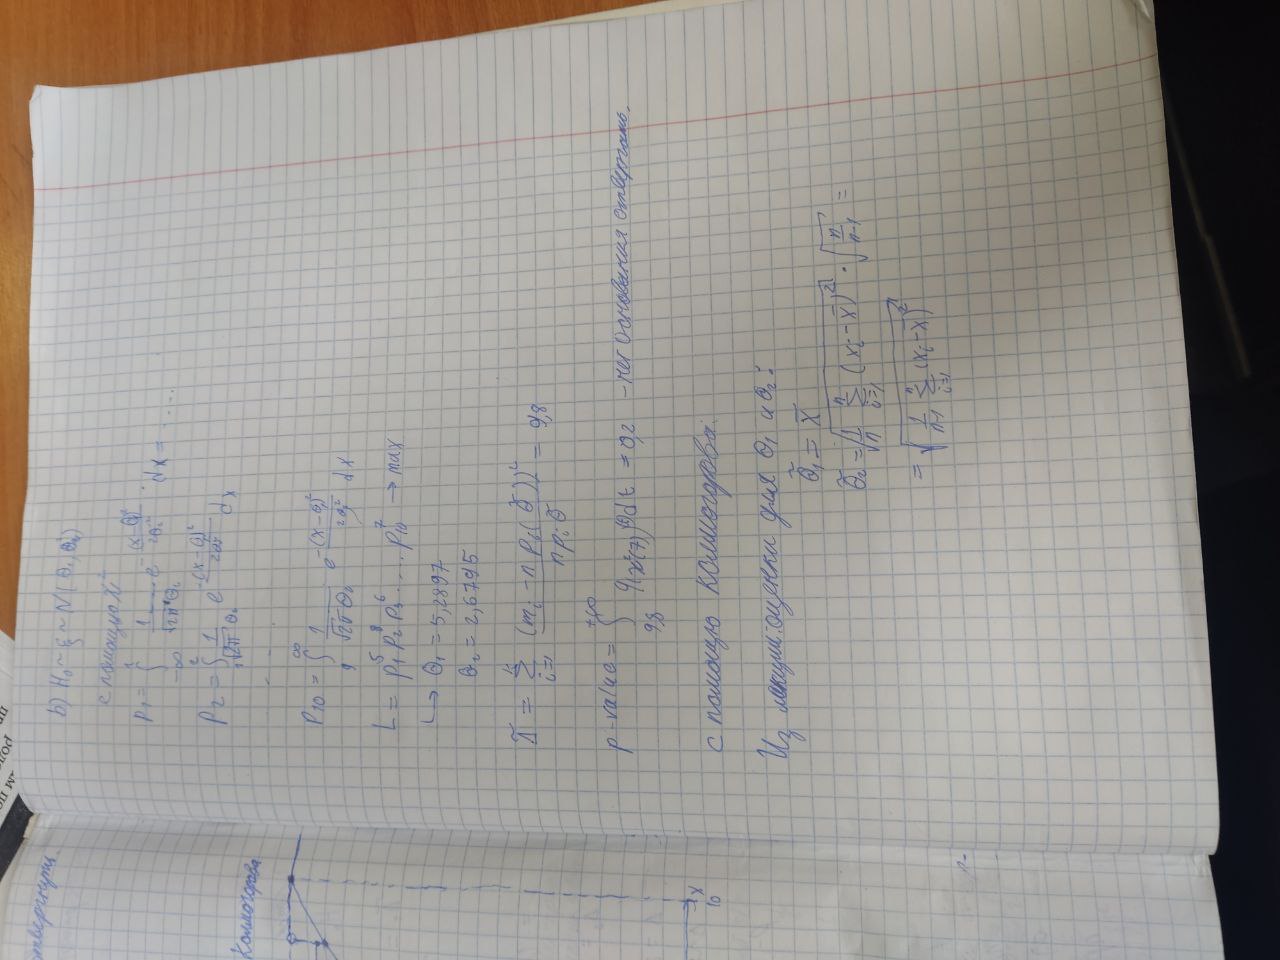 отвергнуть.
Колмогорова
x
10
b) H₀ ~ ξ ~ N(θ₁, θ₂²)
с помощью χ²
p₁ = ∫_{-∞}^{1} 1/(√2π θ₂) e^{-(x-θ₁)²/2θ₂²} dx = ....
P₂ = ∫_{1}^{2} 1/(√2π θ₂) e^{-(x-θ₁)²/2θ₂²} dx
. . . .
P₁₀ = ∫_{9}^{∞} 1/(√2π θ₂) e^{-(x-θ₁)²/2θ₂²} dx
L = p₁⁵ p₂⁸ p₃⁶ .... p₁₀⁷ → max
↳ θ₁ = 5,2897
θ₂ = 2,6795
Δ̃ = Σ_{i=1}^{k} (mᵢ - n pᵢ(θ̃))² / n pᵢ θ̃ = 9,8
p-value = ∫_{9,8}^{+∞} q_{(χ²(7))}(t) dt = 0,2 - нет основания отвергать.
с помощью Колмогорова.
Из лекции: оценки для θ₁ и θ₂:
θ̃₁ = x̄
θ̃₂ = √(1/n Σ_{i=1}^{n} (xᵢ - x̄)²) · √(n/(n-1)) =
= √(1/(n-1) Σ_{i=1}^{n} (xᵢ - x̄)²)